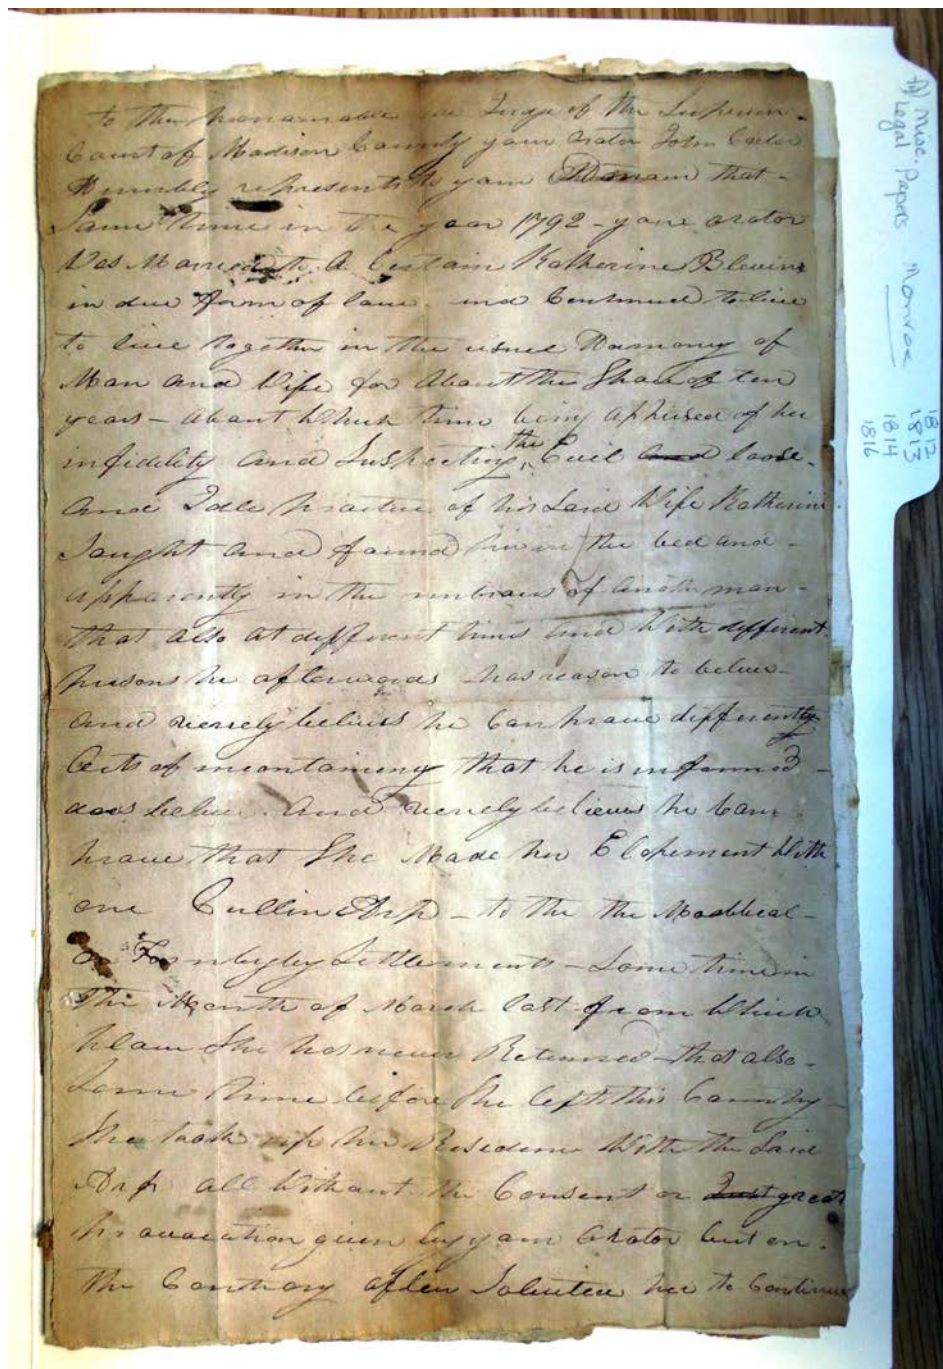 to the honorable the Judge of the Superior
Court of Madison County your orator John
Humbly represents to your Honour that
Some time in the year 1792 - your orator
Was Married to A Certain Katherine Blevins
in due form of law and Continued to live
to live together in the usual Harmony of
Man and Wife for About the Space of ten
years - about Which time being apprised of her
infidelity and Suspecting the Evil and loose
And Idle practice of his Said Wife Katherine
Sought and found her in the bed and
apparently in the of another man
that also at different times and With different
persons he afterwards has reason to believe
and verely believes he Can prove different
Acts of that he is informed
does believe And verely believes he Can
prove that She Made her Elopement With
one Cullin Arp - to the the
or Settlements - Some time in
The Month of March last from Which
place She has never Returned that also
Some time before She left this Country
She took up her Residence With the Said
Arp all Without the Consent or Just great
provocation given by your Orator but on
the Contrary often Solicited her to Continue
Misc.
Legal Papers
Monroe
1812
1813
1814
1816